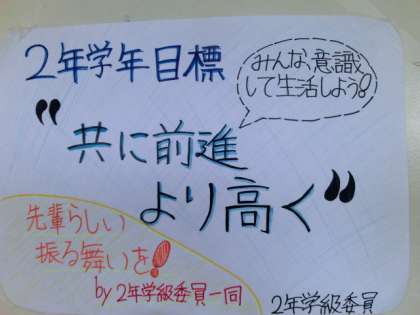 2年学年目標
みんな、意識
して生活しよう!
"共に前進
より高く"
先輩らしい
振る舞いを!
by 2年学級委員一同
2年学級委員